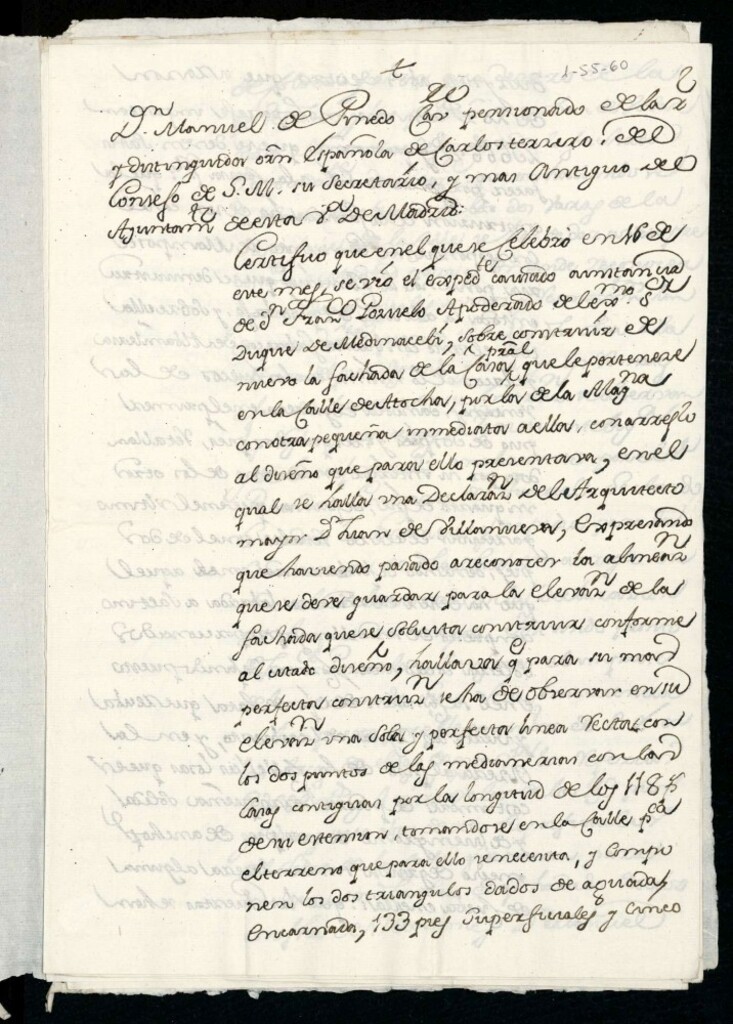 1-55-60
2
Dn. Manuel de Pinedo Cavro pensionado de la R
y distinguida orn. Española de Carlos tercero: del
Consejo de S. M. su Secretario, y mas Antiguo del
Ayuntamto de esta Va De Madrid:
Certifico que en el que se Celebró en 16 de
este mes, se vió el expedte causado a instancia
de Dn Franco Pozuelo Apoderado del Exmo. Sr
Duque de Medinaceli, sobre construir de
nuevo la fachada de la Casa pral que le pertenece
en la Calle de Atocha, por la de la Magna
con otra pequeña inmediata a ella, con arreglo
al diseño que para ello presentava, en el
qual se halla una Declaran del Arquitecto
mayor Dn Juan de Villanueva, Expresando
que haviendo pasado a reconocer la alinean
que se deve guardar para la elevan de la
fachada que se solicita construir conforme
al citado diseño, hallava q para su mas
perfecta construn se ha de observar en su
elevan una sola y perfecta linea recta, con
los dos puntos de las medianerias con las
Casas contiguas por la longitud de los 118 ps
de su extension, tomandose en la Calle pca
el terreno que para ello se necesita, y Compo
nen los dos triangulos dados de aguada
encarnada, 133 pies superficiales y cinco